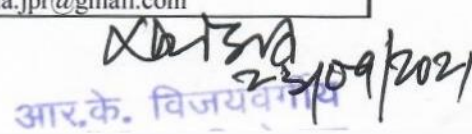 a.jpr@gmail.com
23/09/2021
आर.के. विजयवर्गीय